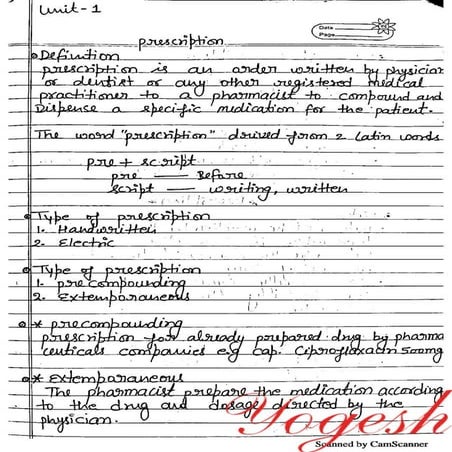 Unit-1
Date
Page
prescription
Definition
prescription is an order written by physician
or dentist or any other registered medical
practitioner to a pharmacist to compound and
Dispense a specific medication for the patient.
The word "prescription" drived from 2 Latin words
pre + script
pre — Before
script — writing, written
Type of prescription
1. Handwritten
2. Electric
Type of prescription
1. precompounding
2. Extemporaneous
* precompounding
prescription for already prepared drug by pharma
ceuticals companies e.g cap. Ciprofloxacin 500mg
* Extemporaneous
The pharmacist prepare the medication according
to the drug and dosage directed by the
physician.
Yogesh
Scanned by CamScanner